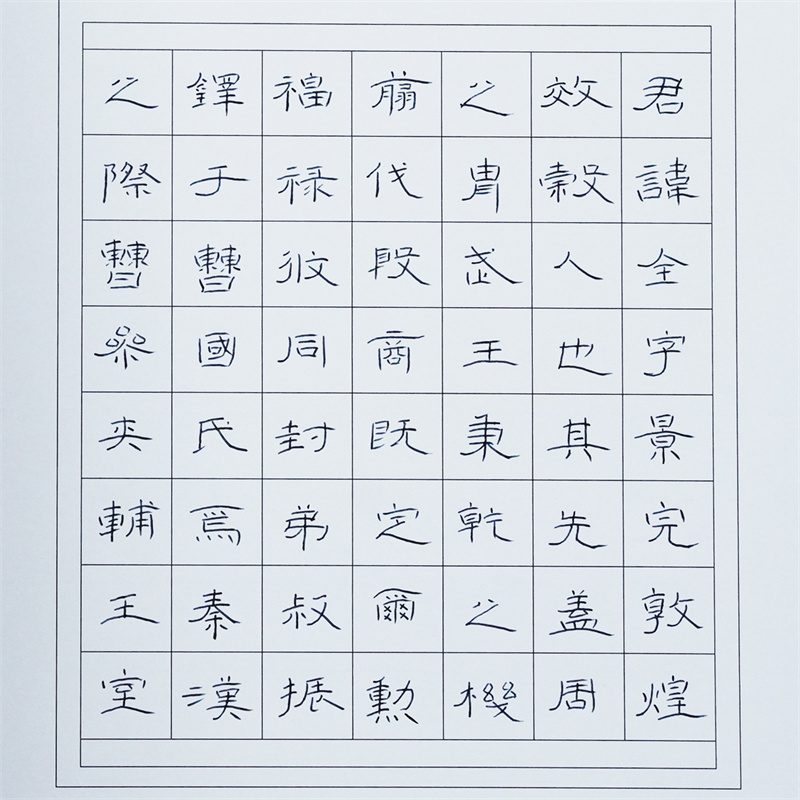 君諱全字景完敦煌
效穀人也其先盖周
之胄武王秉乾之機
翦伐殷商既定爾勲
福禄攸同封弟叔振
鐸于曹國氏焉秦漢
之際曹參夾輔王室